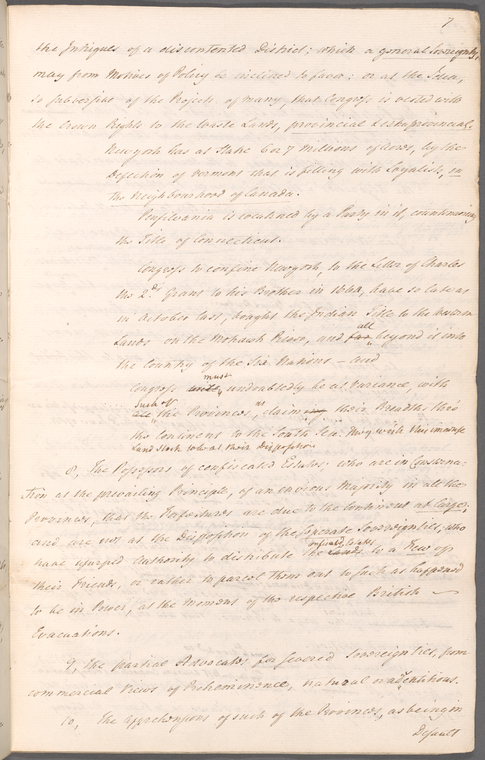 7
the Intrigues of a discontented District; which a general Sovereignty,
may from Motives of Policy be inclined to favor: or as the Idea,
so subversive of the Projects of many, that Congress is vested with
the Crown Rights to the waste Lands, provincial & extraprovincial.
New york has at Stake 6 or 7 millions of Acres, by the
Defection of Vermont that is filling with Loyalists, in
the Neighbourhood of Canada.
Pensilvania is weakened by a Party in it, countenancing
the Title of Connecticut.
Congress to confine New york, to the Letter of Charles
the 2.ds Grant to his Brother in 1664, have so late as
in October last, bought the Indian Title to the western
Lands on the Mohawk River, and far all beyond it into
the Country of the Six Nations — and
Congress will must undoubtedly be at Variance, with
all such of the Provinces, as claiming their Breadths thro
the Continent to the South Sea. They wish this immense
Land Stock to be at their Disposition
8, The Possessors of confiscated Estates; who are in Consterna-
tion at the prevailing Principle, of an envious Majority in all the
Provinces, that the Forfeitures are due to the Continent at large,
and are not at the Disposition of the separate Sovereignties, who
have usurped Authority to distribute the Lands, to a Few of
their Friends, or rather to parcel them out to such as happened
to be in Power, at the Moments of the respective British
Evacuations.
9, the partial Advocates for several Sovereignties, from
commercial Views of Preheminence, natural or adventitious.
10, The Apprehensions of such of the Provinces, as being in
Default